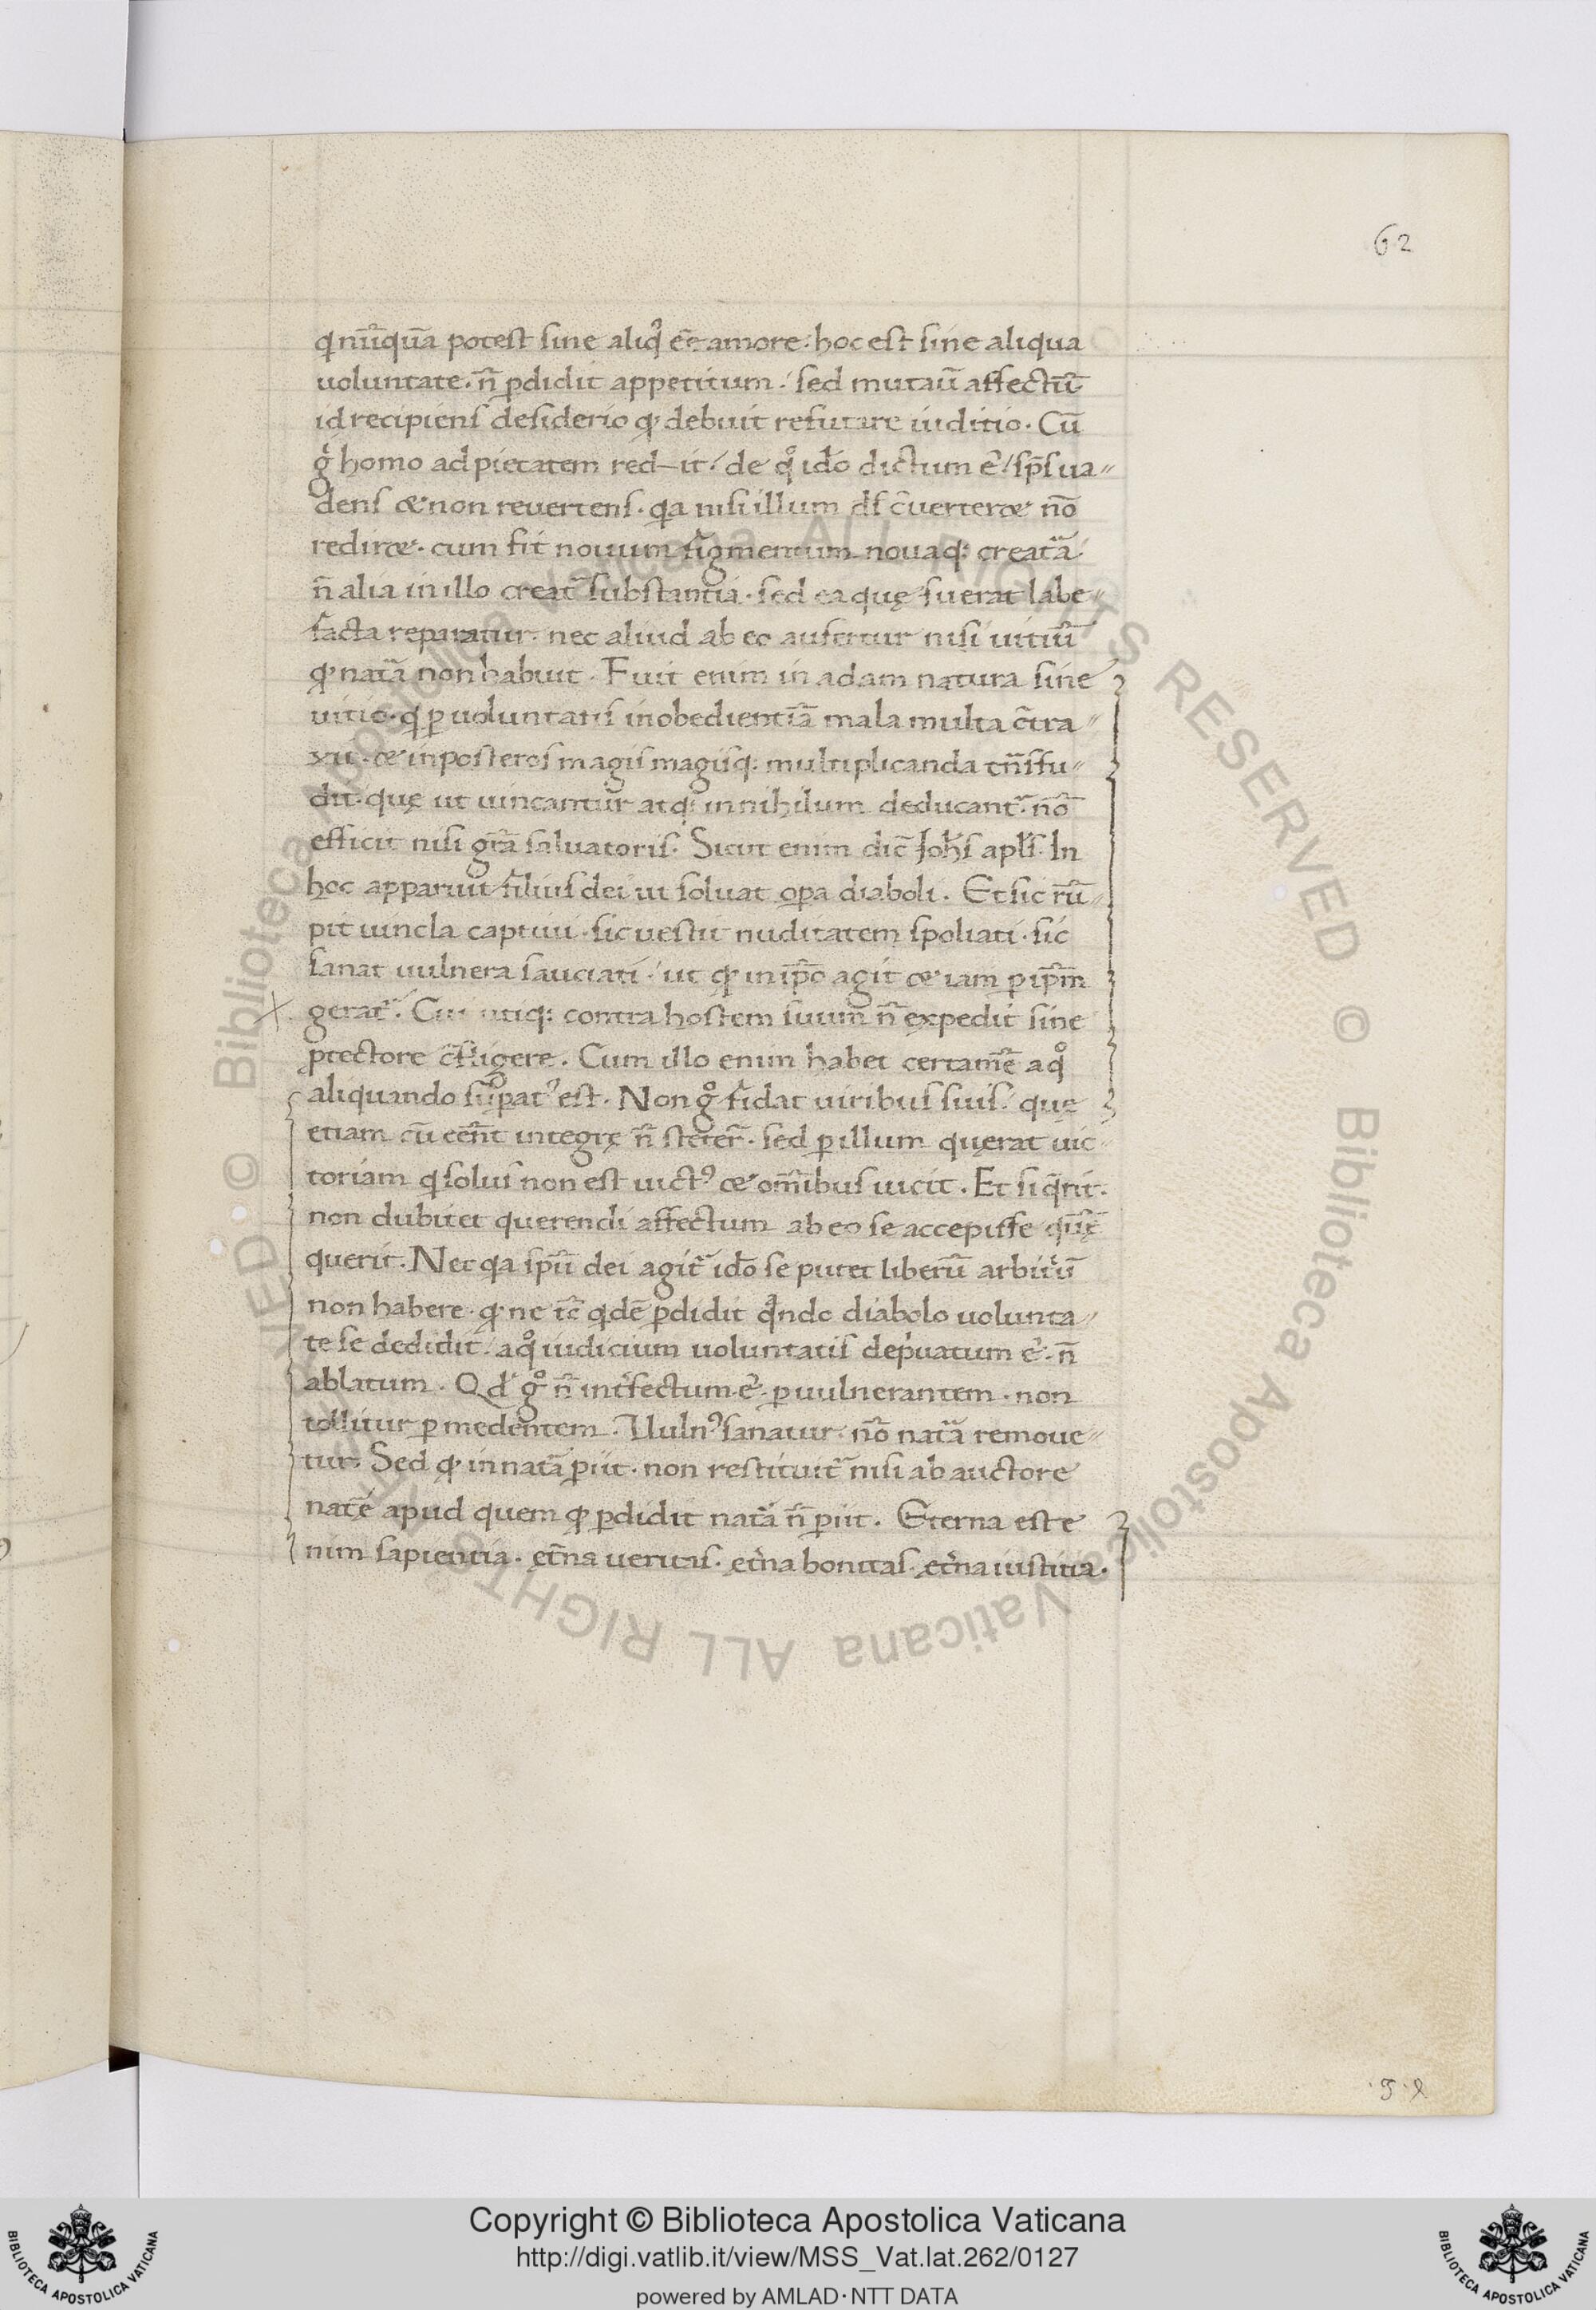 62
qui nūquā potest sine aliqͦ eē amore. hoc est sine aliqua
uoluntate. n̄ ꝑdidit appetitum. sed mutauͥ affectū
id recipiens desiderio qđ debuit refutare iuditio. Cū
gͥ homo ad pietatem red-it. de qͦ ido dictum ē. sp̄s ua-
dens & non reuertens. qa nisi illum ds̄ c̄uerteret nō
rediret. cum fit nouum figmentum nouaq; creatā
n̄ alia in illo creat̄ substantia. sed ea quę fuerat labe-
facta reparatur. nec aliud ab eo aufertur nisi uitiū
qđ natā non habuit. Fuit enim in adam natura sine
uitio. q ꝑ uoluntatis inobedientiā mala multa c̄tra-
xit. & in posteros magis magisq; multiplicanda trn̄sfu-
dit. quę ut uincantur atq; in nihilum deducant̄. nō
efficit nisi grā saluatoris. Sicut enim dic̄ Joh̄s apl̄s. In
hoc apparuit filius dei ut soluat oꝑa diaboli. Et sic rū-
pit uincla captiui. sic uestit nuditatem spoliati. sic
sanat uulnera sauciati. ut qđ in ip̄o agit & iam ꝑ ip̄m
gerat̄. Cui utiq; contra hostem suum n̄ expedit sine
ꝓtectore c̄fligere. Cum illo enim habet certamē a qͦ
aliquando suꝑatꝰ est. Non gͦ fidat uiribus suis. quę
etiam cū eēnt integrę n̄ steter̄. sed ꝑ illum quęrat uic-
toriam q solus non est uictꝰ & om̄ibus uicit. Et si q̄rit.
non dubitet querendi affectum ab eo se accepisse quē
querit. Nec qa spū dei agit̄ ido se putet liberū arbitͥū
non habere. qđ ne tc̄ qdē ꝑdidit qͣndo diabolo uolunta-
te se dedidit. a qͦ iudicium uoluntatis depͣuatum ē. n̄
ablatum. Qd gͦ n̄ int̄fectum ē. ꝑ uulnerantem. non
tollitur ꝑ medentem. Uulnꝰ sanatur. nō natā remoue-
tur. Sed qđ in natā ꝑiit. non restituit̄ nisi ab auctore
natē apud quem qđ ꝑdidit natā n̄ ꝑiit. Eterna est e
nim sapientia. ęt̄na ueritas. ęt̄na bonitas. ęt̄na iustitia.
Copyright © Biblioteca Apostolica Vaticana
http://digi.vatlib.it/view/MSS_Vat.lat.262/0127
powered by AMLAD·NTT DATA